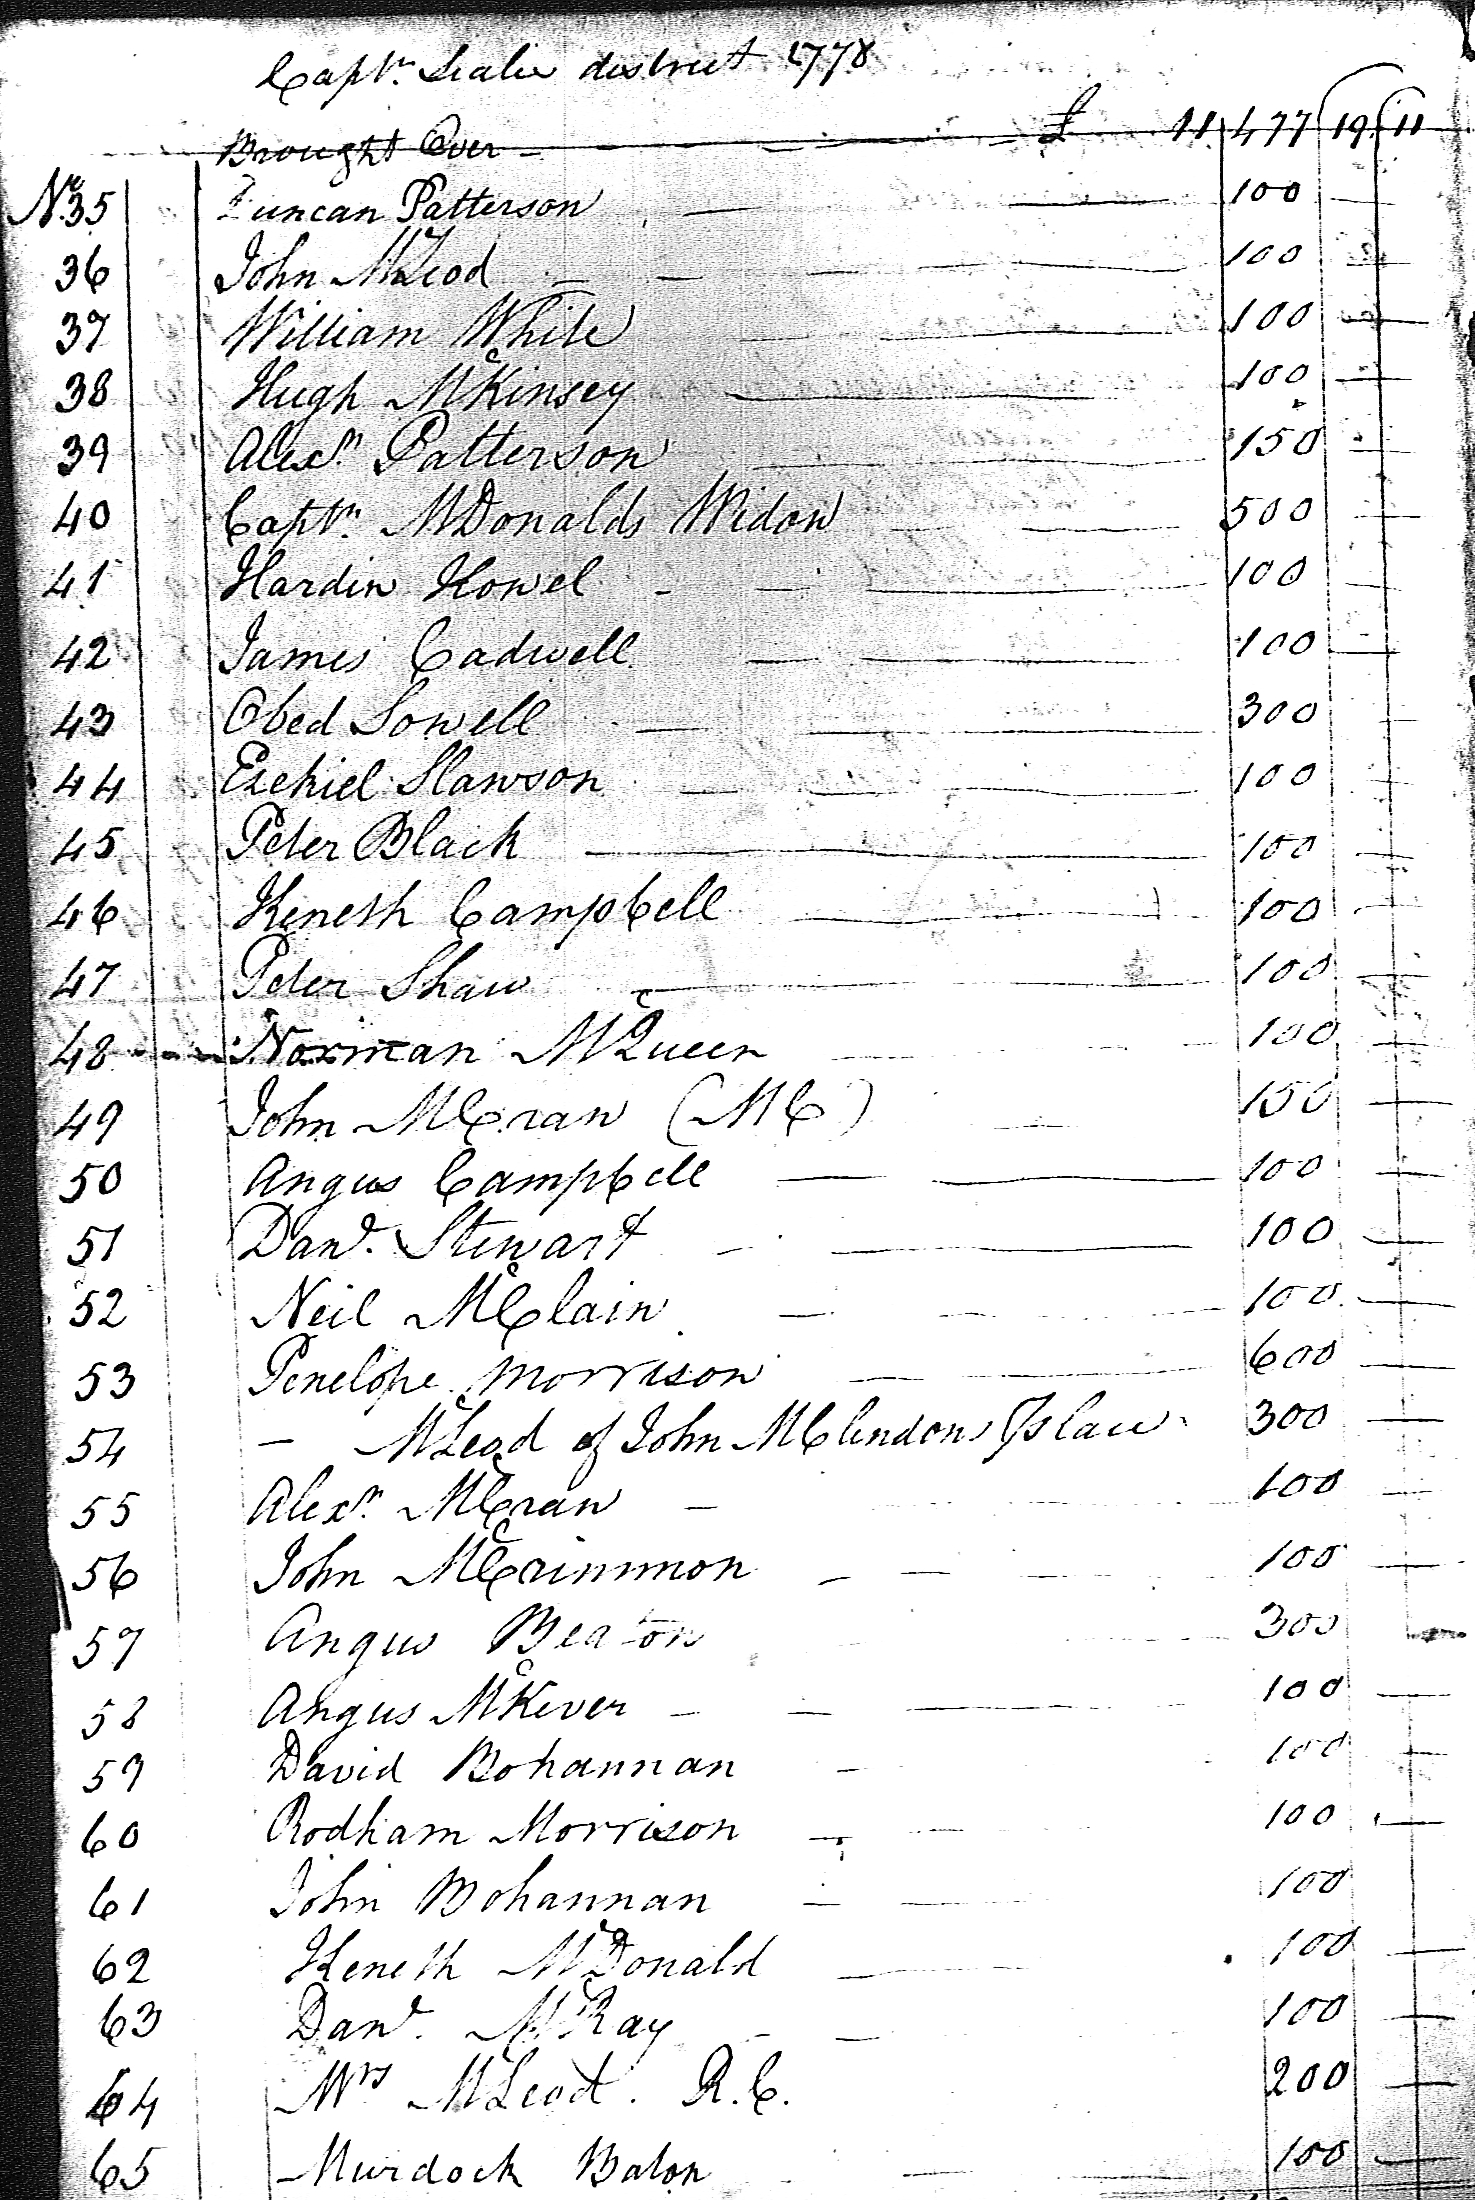 Captn. district 1778
Brought Over £ 11,477 19 11
No. 35 Duncan Patterson 100
36 John McLeod 100
37 William White 100
38 Hugh McKinsey 100
39 Alexr. Patterson 150
40 Captn. McDonalds Widow 500
41 Hardin Howel 100
42 James Cadwell 100
43 Obed Sowell 300
44 Ezekiel Slawson 100
45 Peter Black 100
46 Keneth Campbell 100
47 Peter Shaw 100
48 Norman McQueen 100
49 John McCraw (MC) 150
50 Angus Campbell 100
51 Danl. Stewart 100
52 Neil McClain 100
53 Penelope Morrison 600
54 - McLeod of John McClendons 300
55 Alexr. McCraw 100
56 John McCrimmon 100
57 Angus Beaton 300
58 Angus McKever 100
59 David Bohannan 100
60 Rodham Morrison 100
61 John Bohannan 100
62 Keneth McDonald 100
63 Danl. McRay 100
64 Mrs McLeod. R.C. 200
65 Murdock Baton 100